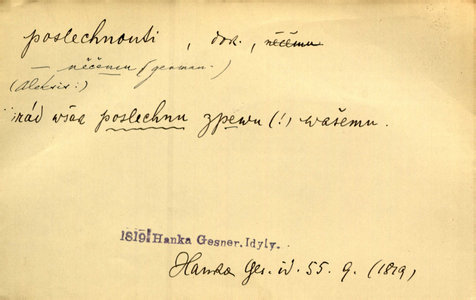 poslechnouti, dok., něčemu
— něčemu (german.)
(Aleksis:)
rád wšak poslechnu zpewu (!) wašemu.
1819 Hanka Gesner. Idyly.
Hanka Ges. id. 55. 9. (1819)